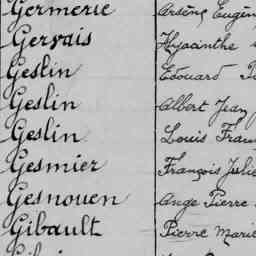 Germerie Arsène Eugèn
Gervais Hyacinthe
Geslin Edouard
Geslin Albert Jean
Geslin Louis Fran
Gesmier François Julie
Gesnouen Ange Pierre
Gibault Pierre Marie